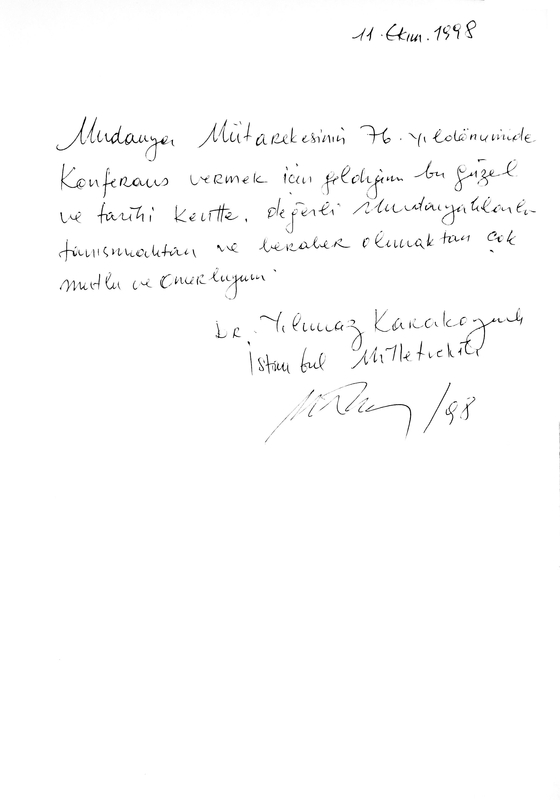 11. Ekim. 1998
Mudanya Mütarekesinin 76. yıldönümünde
Konferans vermek için geldiğim bu güzel
ve tarihi kentte, değerli Mudanyalılarla
tanışmaktan ve beraber olmaktan çok
mutlu ve onurluyum.
Dr. Yılmaz Karakoyunlu
İstanbul Milletvekili
/98